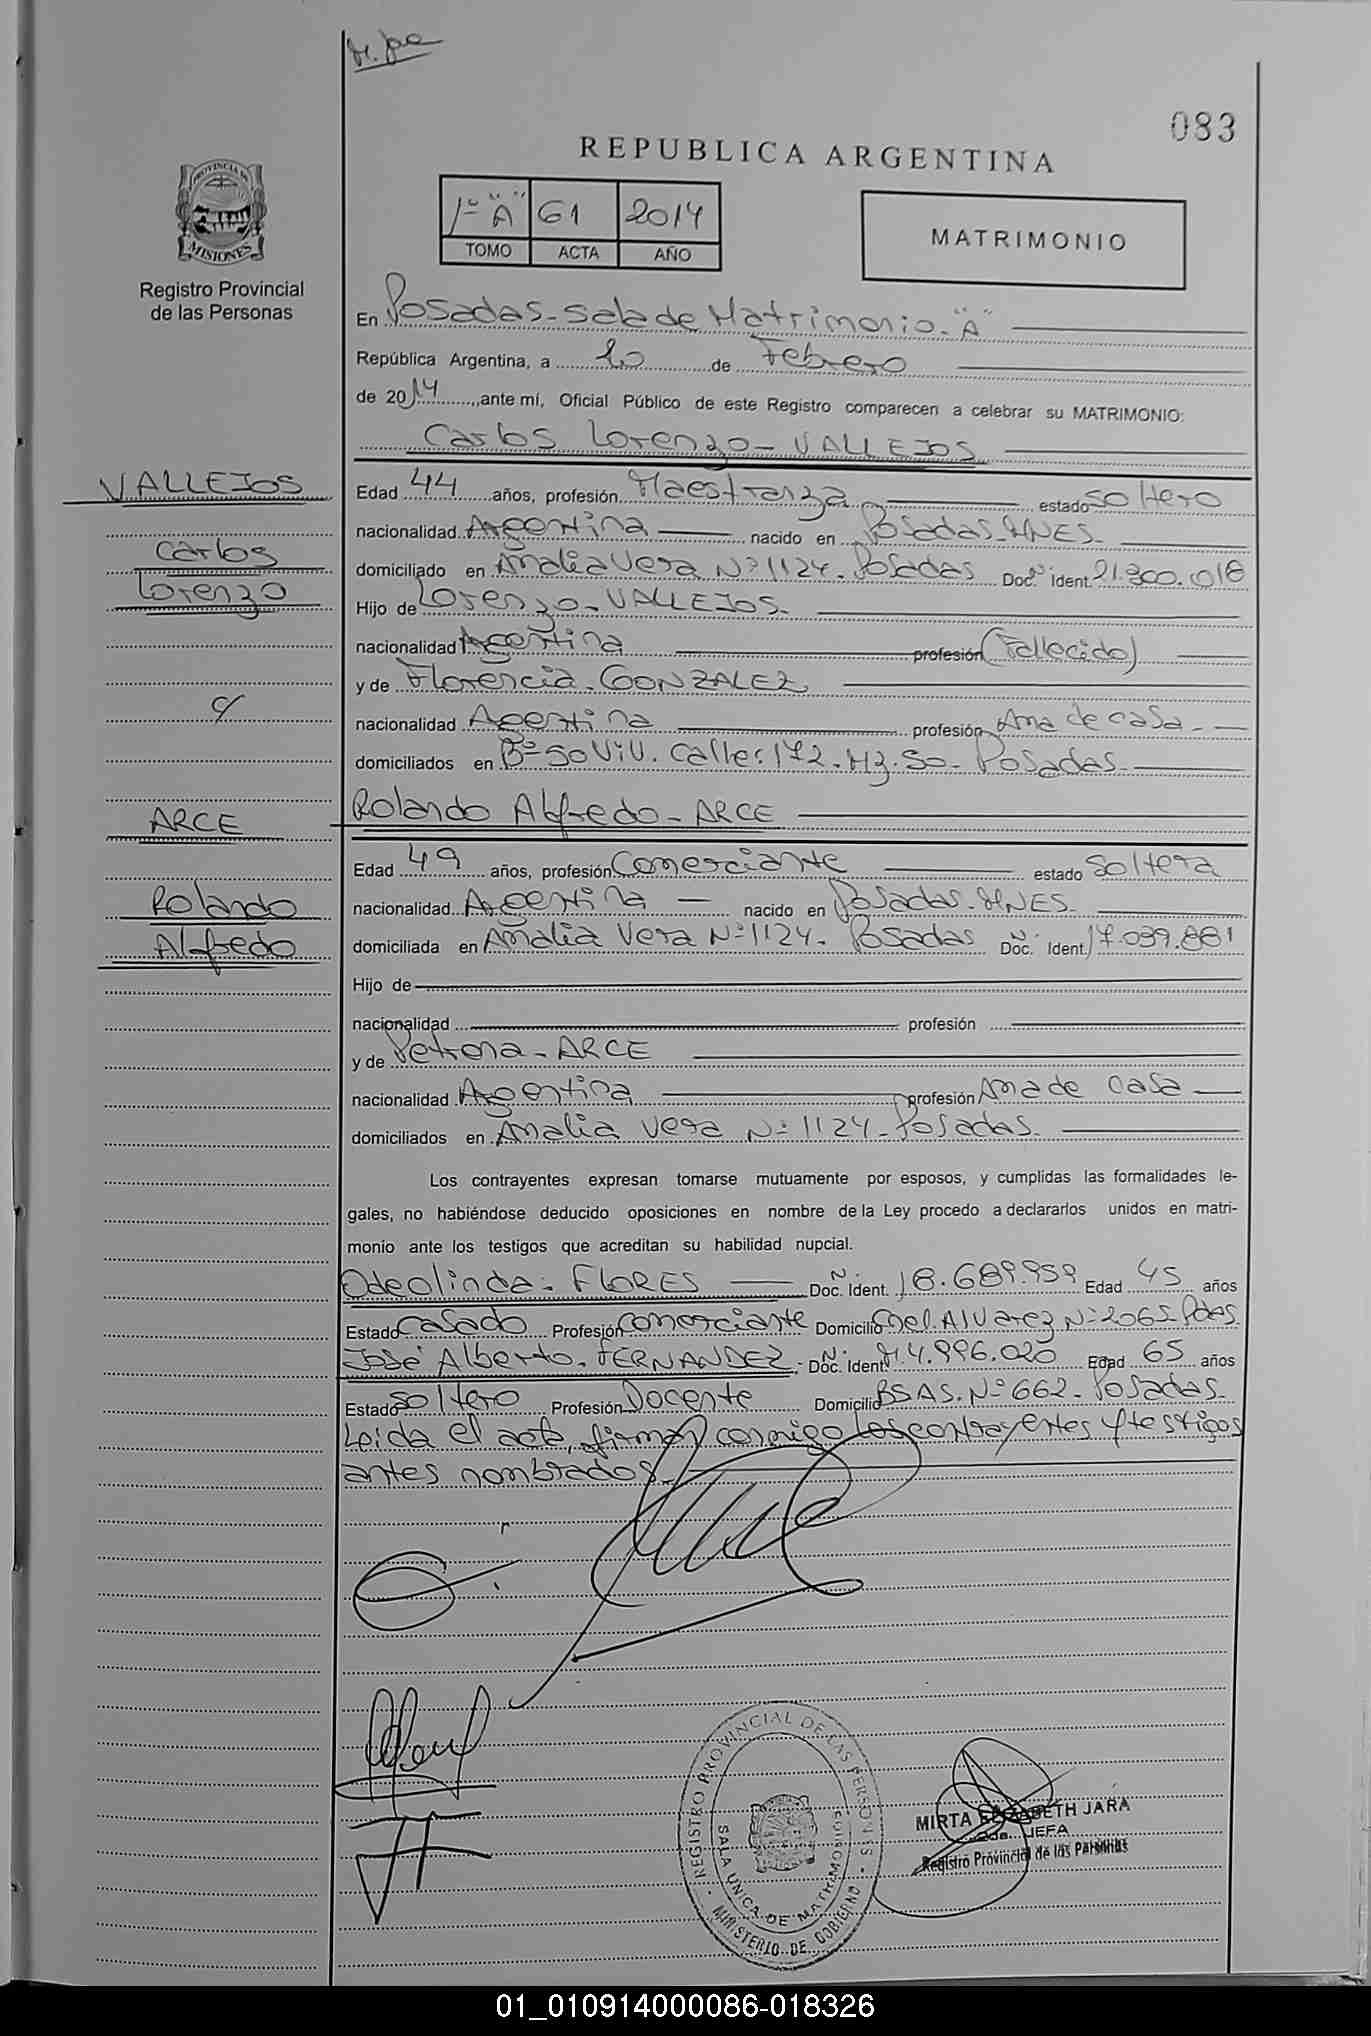 083
REPUBLICA ARGENTINA
1º "A" 61 2014
TOMO ACTA AÑO
MATRIMONIO
PROVINCIA DE MISIONES
Registro Provincial
de las Personas
En Posadas - Sala de Matrimonio - "A"
República Argentina, a de Febrero
de 2014, ante mí, Oficial Público de este Registro comparecen a celebrar su MATRIMONIO:
Carlos Lorenzo - VALLEJOS
VALLEJOS
Carlos
Lorenzo
c/
ARCE
Rolando
Alfredo
Edad 44 años, profesión Maestranza estado soltero
nacionalidad Argentina nacido en Posadas - MNES.
domiciliado en Amalia Vera Nº 1124 - Posadas Doc. Nº Ident. 21.300.018
Hijo de Lorenzo - VALLEJOS.
nacionalidad Argentina profesión (Fallecido)
y de Florencia - GONZALEZ
nacionalidad Argentina profesión Ama de casa -
domiciliados en Bº 50 Viv. Calle: 172 - Mz. 50 - Posadas
Rolando Alfredo - ARCE
Edad 49 años, profesión Comerciante estado soltera
nacionalidad Argentina - nacido en Posadas - MNES.
domiciliada en Amalia Vera Nº 1124 - Posadas Doc. Nº Ident. 17.039.881
Hijo de
nacionalidad profesión
y de Petrona - ARCE
nacionalidad Argentina profesión Ama de casa
domiciliados en Amalia Vera Nº 1124 - Posadas.
Los contrayentes expresan tomarse mutuamente por esposos, y cumplidas las formalidades le-
gales, no habiéndose deducido oposiciones en nombre de la Ley procedo a declararlos unidos en matri-
monio ante los testigos que acreditan su habilidad nupcial.
Odeolinda - FLORES Doc. Nº Ident. 18.689.959 Edad 45 años
Estado Casado Profesión Comerciante Domicilio Cnel. Alvarez Nº 2065 Pdas.
José Alberto - FERNANDEZ - Doc. Nº Ident. M4.996.020 Edad 65 años
Estado soltero Profesión Docente Domicilio BS AS. Nº 662 - Posadas.
Leida el acta, firman conmigo los contrayentes y testigos
antes nombrados.
REGISTRO PROVINCIAL DE LAS PERSONAS
SALA UNICA DE MATRIMONIO
MINISTERIO DE GOBIERNO
MIRTA ELIZABETH JARA
JEFA
Registro Provincial de las Personas
01_010914000086-018326